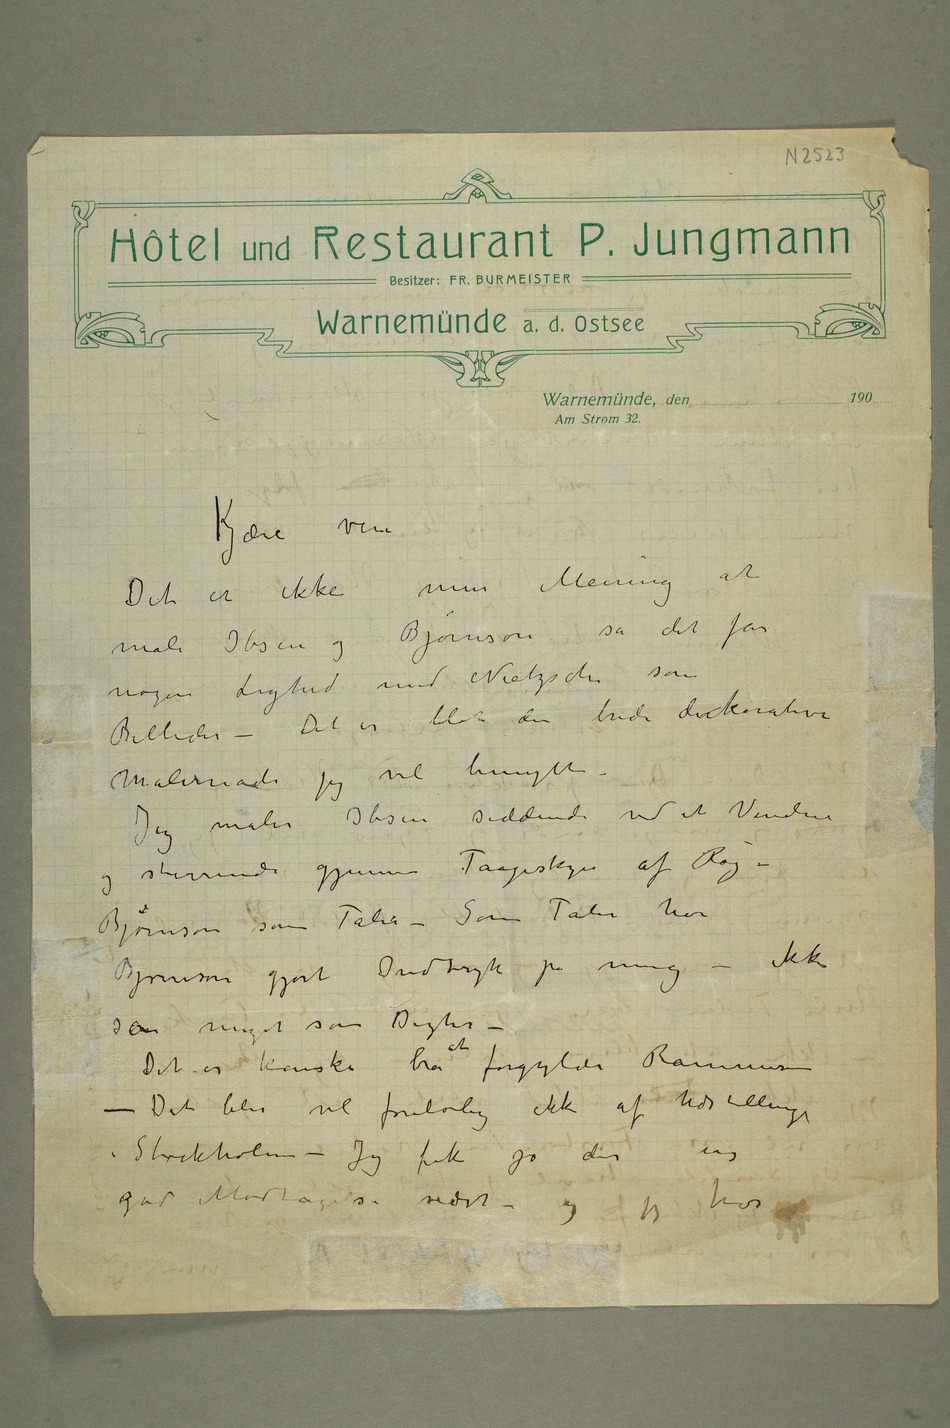 N2523
Hôtel und Restaurant P. Jungmann
Besitzer: FR. BURMEISTER
Warnemünde a. d. Ostsee
Warnemünde, den 190
Am Strom 32.
Kjære ven
Det er ikke min Mening at
male Ibsen og Bjørnson så det får
nogen Lighed med Nietzsche som
Billeder – Det er blot den brede dekorative
Malemåde jeg vil benytte –
Jeg maler Ibsen siddende ved et Vindu
og stirrende gjennem Taageskyer af Røg –
Bjørnson som Taler – Som Taler har
Bjørnson gjort Indtryk på mig – ikke
så meget som Digter –
Det er kanske bra at forgylde Rammerne
– Det blir vel foreløbig ikke af Udstilling
i Stockholm – Jeg fik jo der en
god Modtagelse sidst – og jeg har